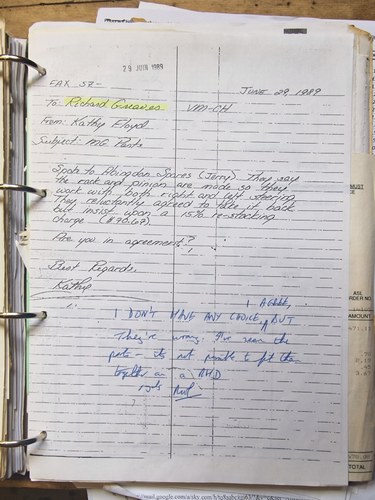 29 JUIN 1989
FAX 57-
JUNE 29, 1989
To: Richard Greaves VM-CH
From: Kathy Floyd
Subject: MG Parts
Spoke to Abingdon Spares (Jerry). They say
the rack and pinion are made so they
work with both right and left steering
They reluctantly agreed to take it back
but insist upon a 15% re-stocking
charge
Are you in agreement?
Best Regards,
Kathy
I AGREE,
I DON'T HAVE ANY CHOICE, BUT
They're wrong. I've seen the
parts - it's not possible to fit the
together on a RHD
ORDER NO.
AMOUNT
TOTAL